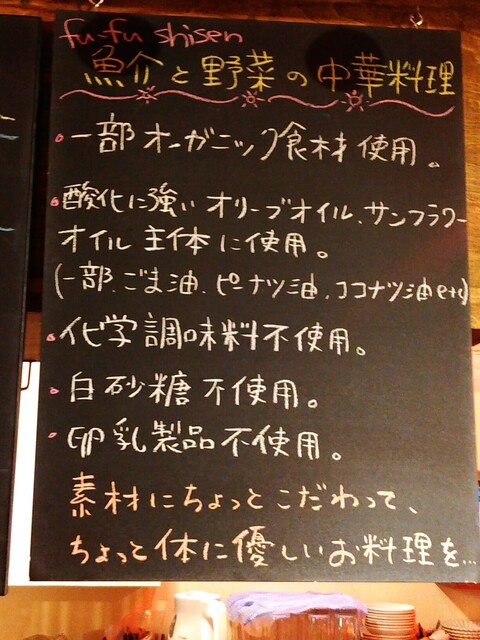 fu-fu shisen
魚介と野菜の中華料理
・一部オーガニック食材使用。
・酸化に強いオリーブオイル、サンフラワー
オイル主体に使用。
(一部、ごま油、ピーナツ油、ココナツ油etc)
・化学調味料不使用。
・白砂糖不使用。
・卵乳製品不使用。
素材にちょっとこだわって、
ちょっと体に優しいお料理を…